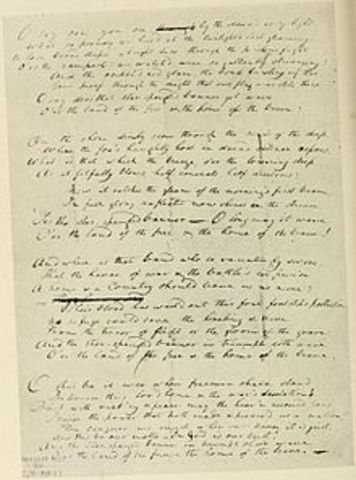 O say can you see by the dawn's early light
What so proudly we hail'd at the twilight's last gleaming
Whose broad stripes & bright stars through the perilous fight
O'er the ramparts we watch'd, were so gallantly streaming?
And the rocket's red glare, the bomb bursting in air
Gave proof through the night that our flag was still there
O say does that star-spangled banner yet wave
O'er the land of the free & the home of the brave?
On the shore dimly seen through the mists of the deep
Where the foe's haughty host in dread silence reposes
What is that which the breeze, o'er the towering steep
As it fitfully blows, half conceals, half discloses?
Now it catches the gleam of the morning's first beam
In full glory reflected now shines in the stream
'Tis the star-spangled banner — O long may it wave
O'er the land of the free & the home of the brave!
And where is that band who so vauntingly swore
That the havoc of war & the battle's confusion
A home & a Country should leave us no more?
Their blood has wash'd out their foul footstep's pollution
No refuge could save the hireling & slave
From the terror of flight or the gloom of the grave
And the star-spangled banner in triumph doth wave
O'er the land of the free & the home of the brave.
O thus be it ever when freemen shall stand
Between their lov'd home & the war's desolation!
Blest with vict'ry & peace may the heav'n rescued land
Praise the power that hath made & preserv'd us a nation!
Then conquer we must, when our cause it is just,
And this be our motto — "In God is our trust"
And the star-spangled banner in triumph shall wave
O'er the land of the free & the home of the brave. —